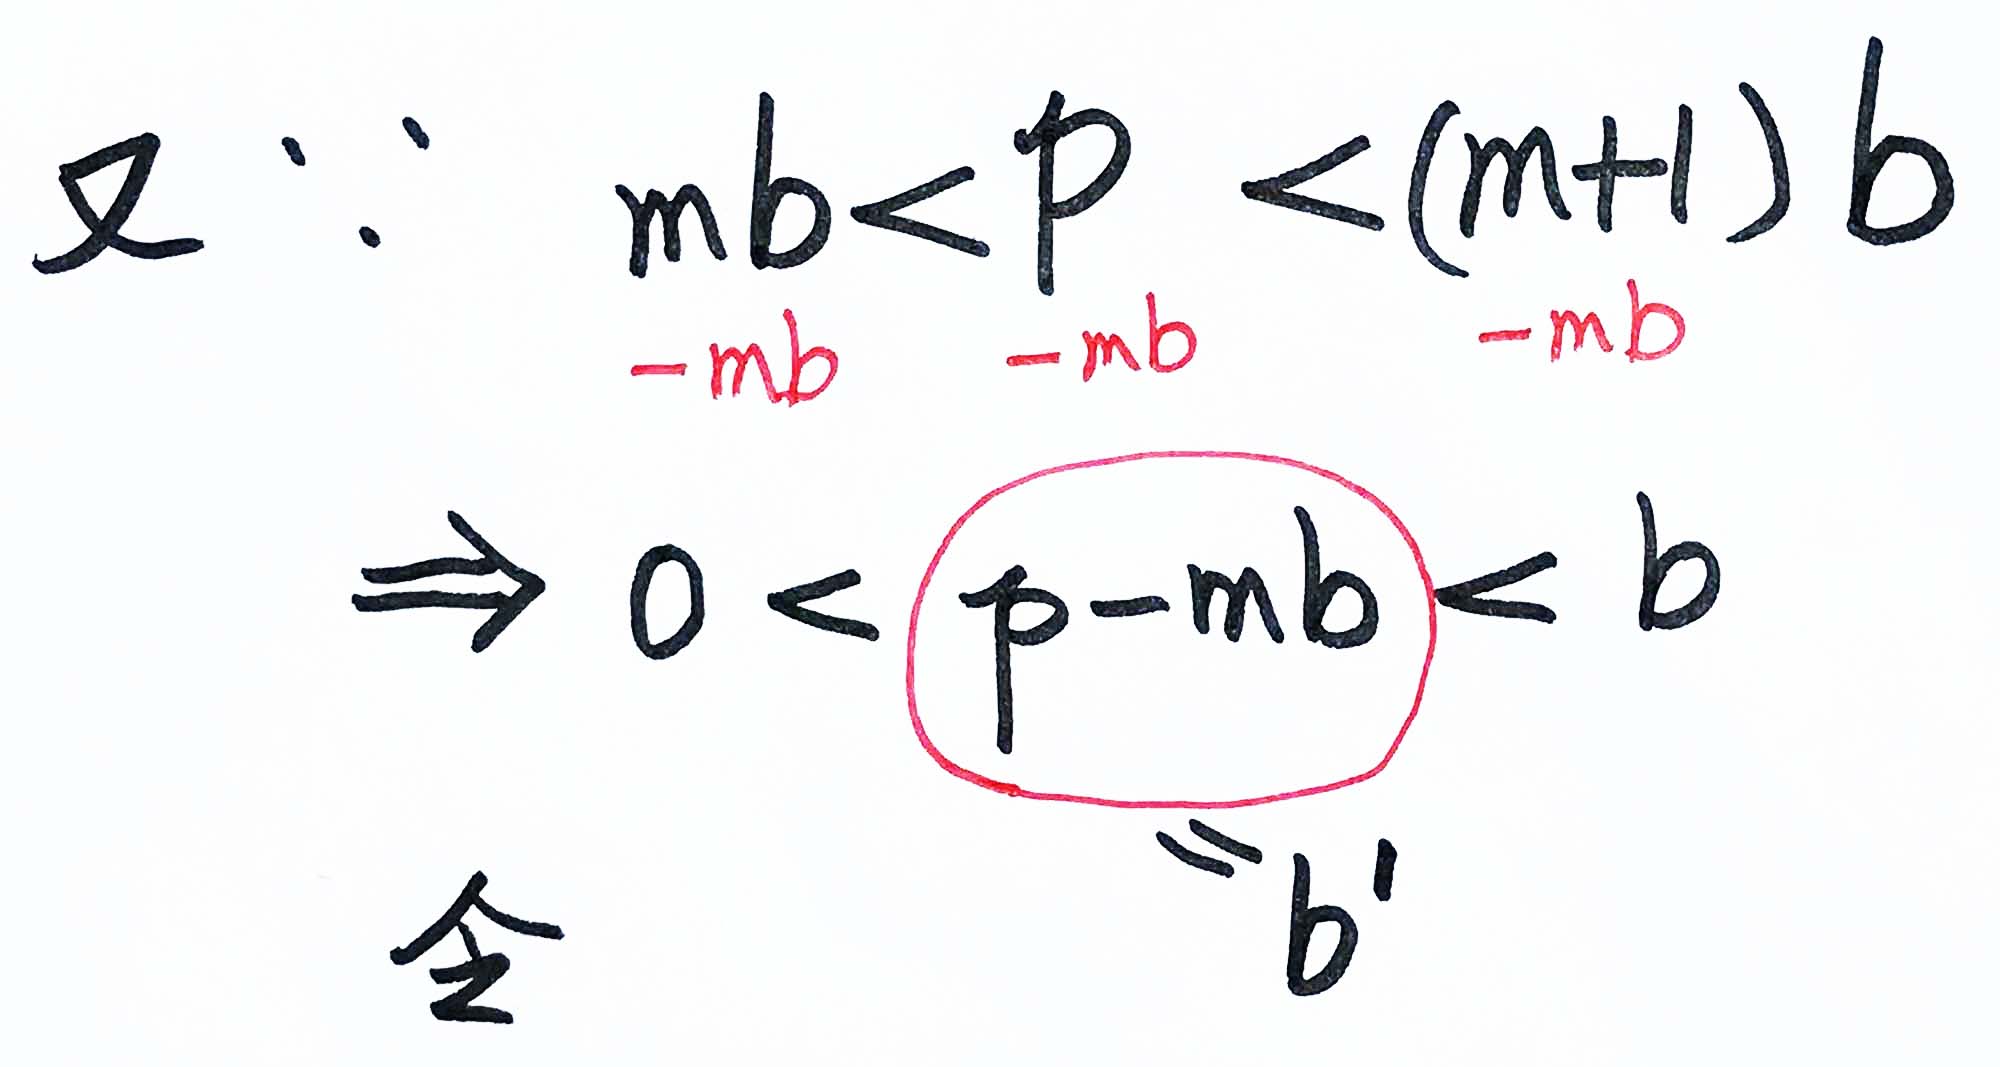 又 ∵ mb < p < (m+1) b
-mb -mb -mb
⇒ 0 < p-mb < b
令 = b'